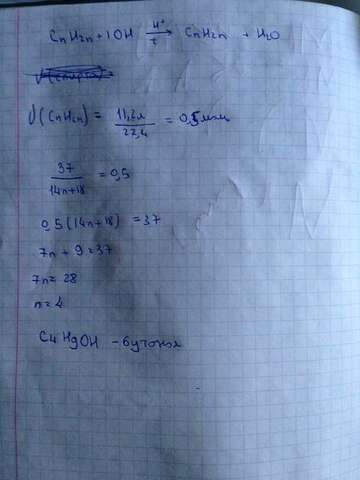 CnH2n+1OH H+ → t CnH2n + H2O
ν(CnH2n) = 11,2л / 22,4 = 0,5 моль
37 / 14n+18 = 0,5
0,5(14n+18) = 37
7n + 9 = 37
7n = 28
n = 4
C4H9OH - бутанол